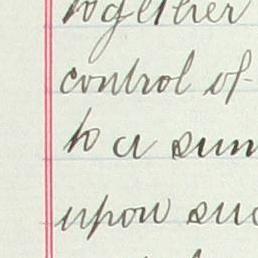 together
control of
to a sum
upon suc